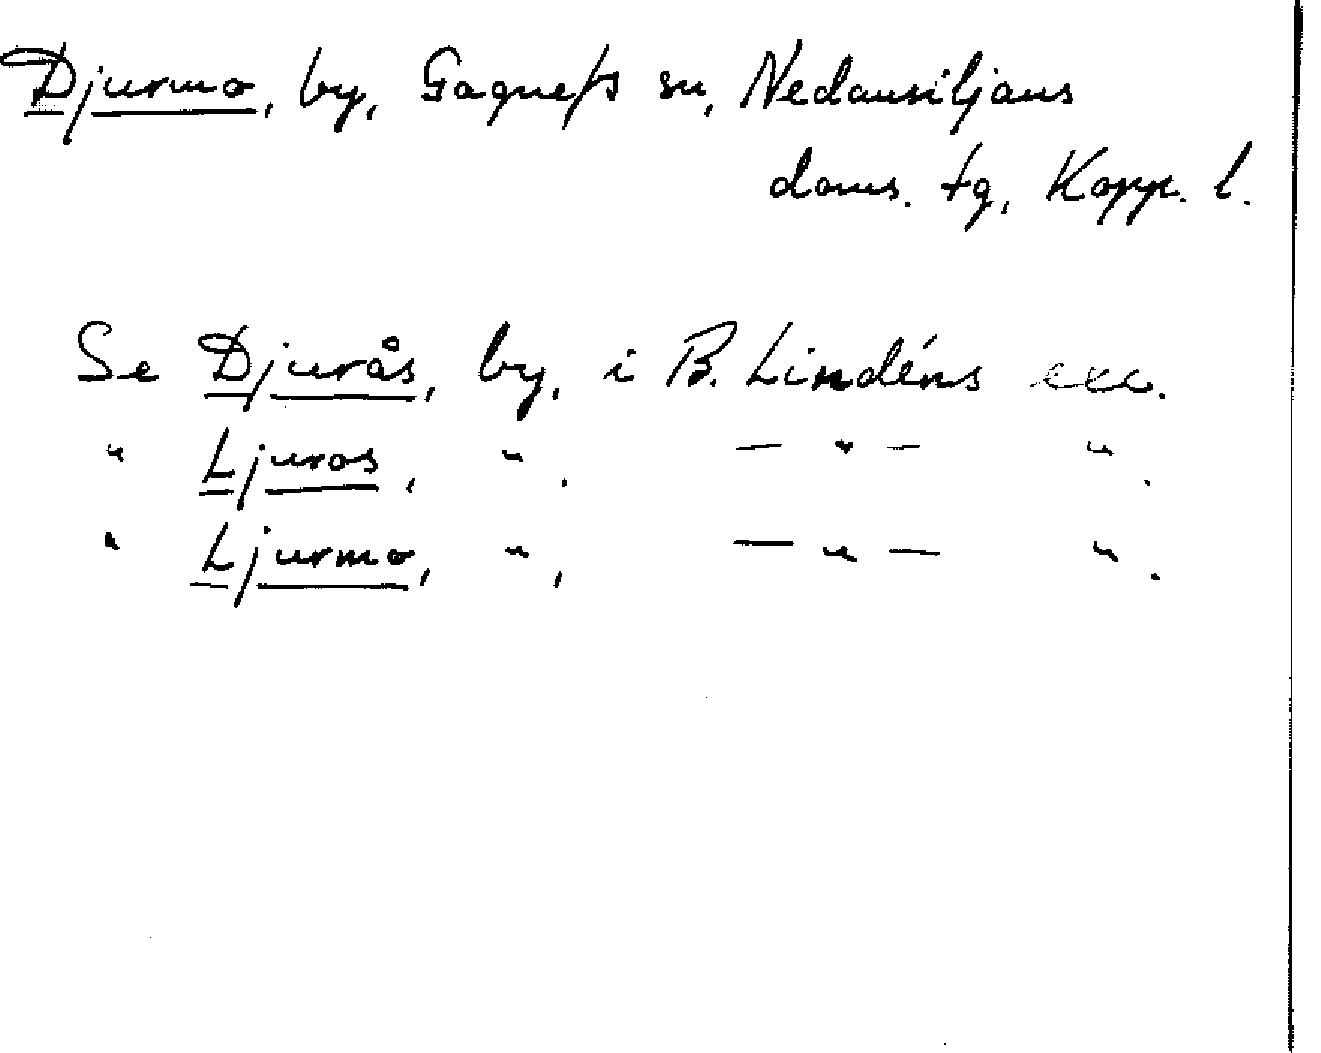 Djurmo, by, Gagnefs sn, Nedansiljans
doms. tg, Kopp. l.
Se Djurås, by, i B. Lindéns exc.
" Ljuros, ". — " — ".
" Ljurmo, ", — " — ".